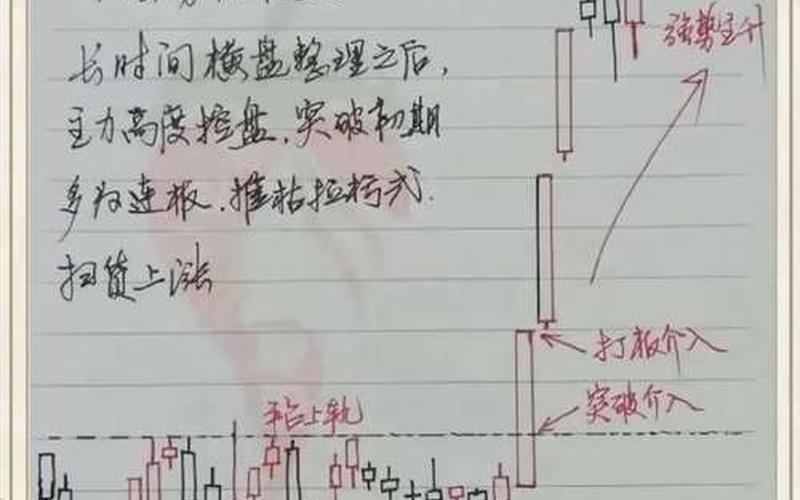 强势主升
长时间横盘整理之后，
主力高度控盘、突破初期
多为连板、推粘拉档式
扫货上涨
打板介入
突破介入
平台上轨